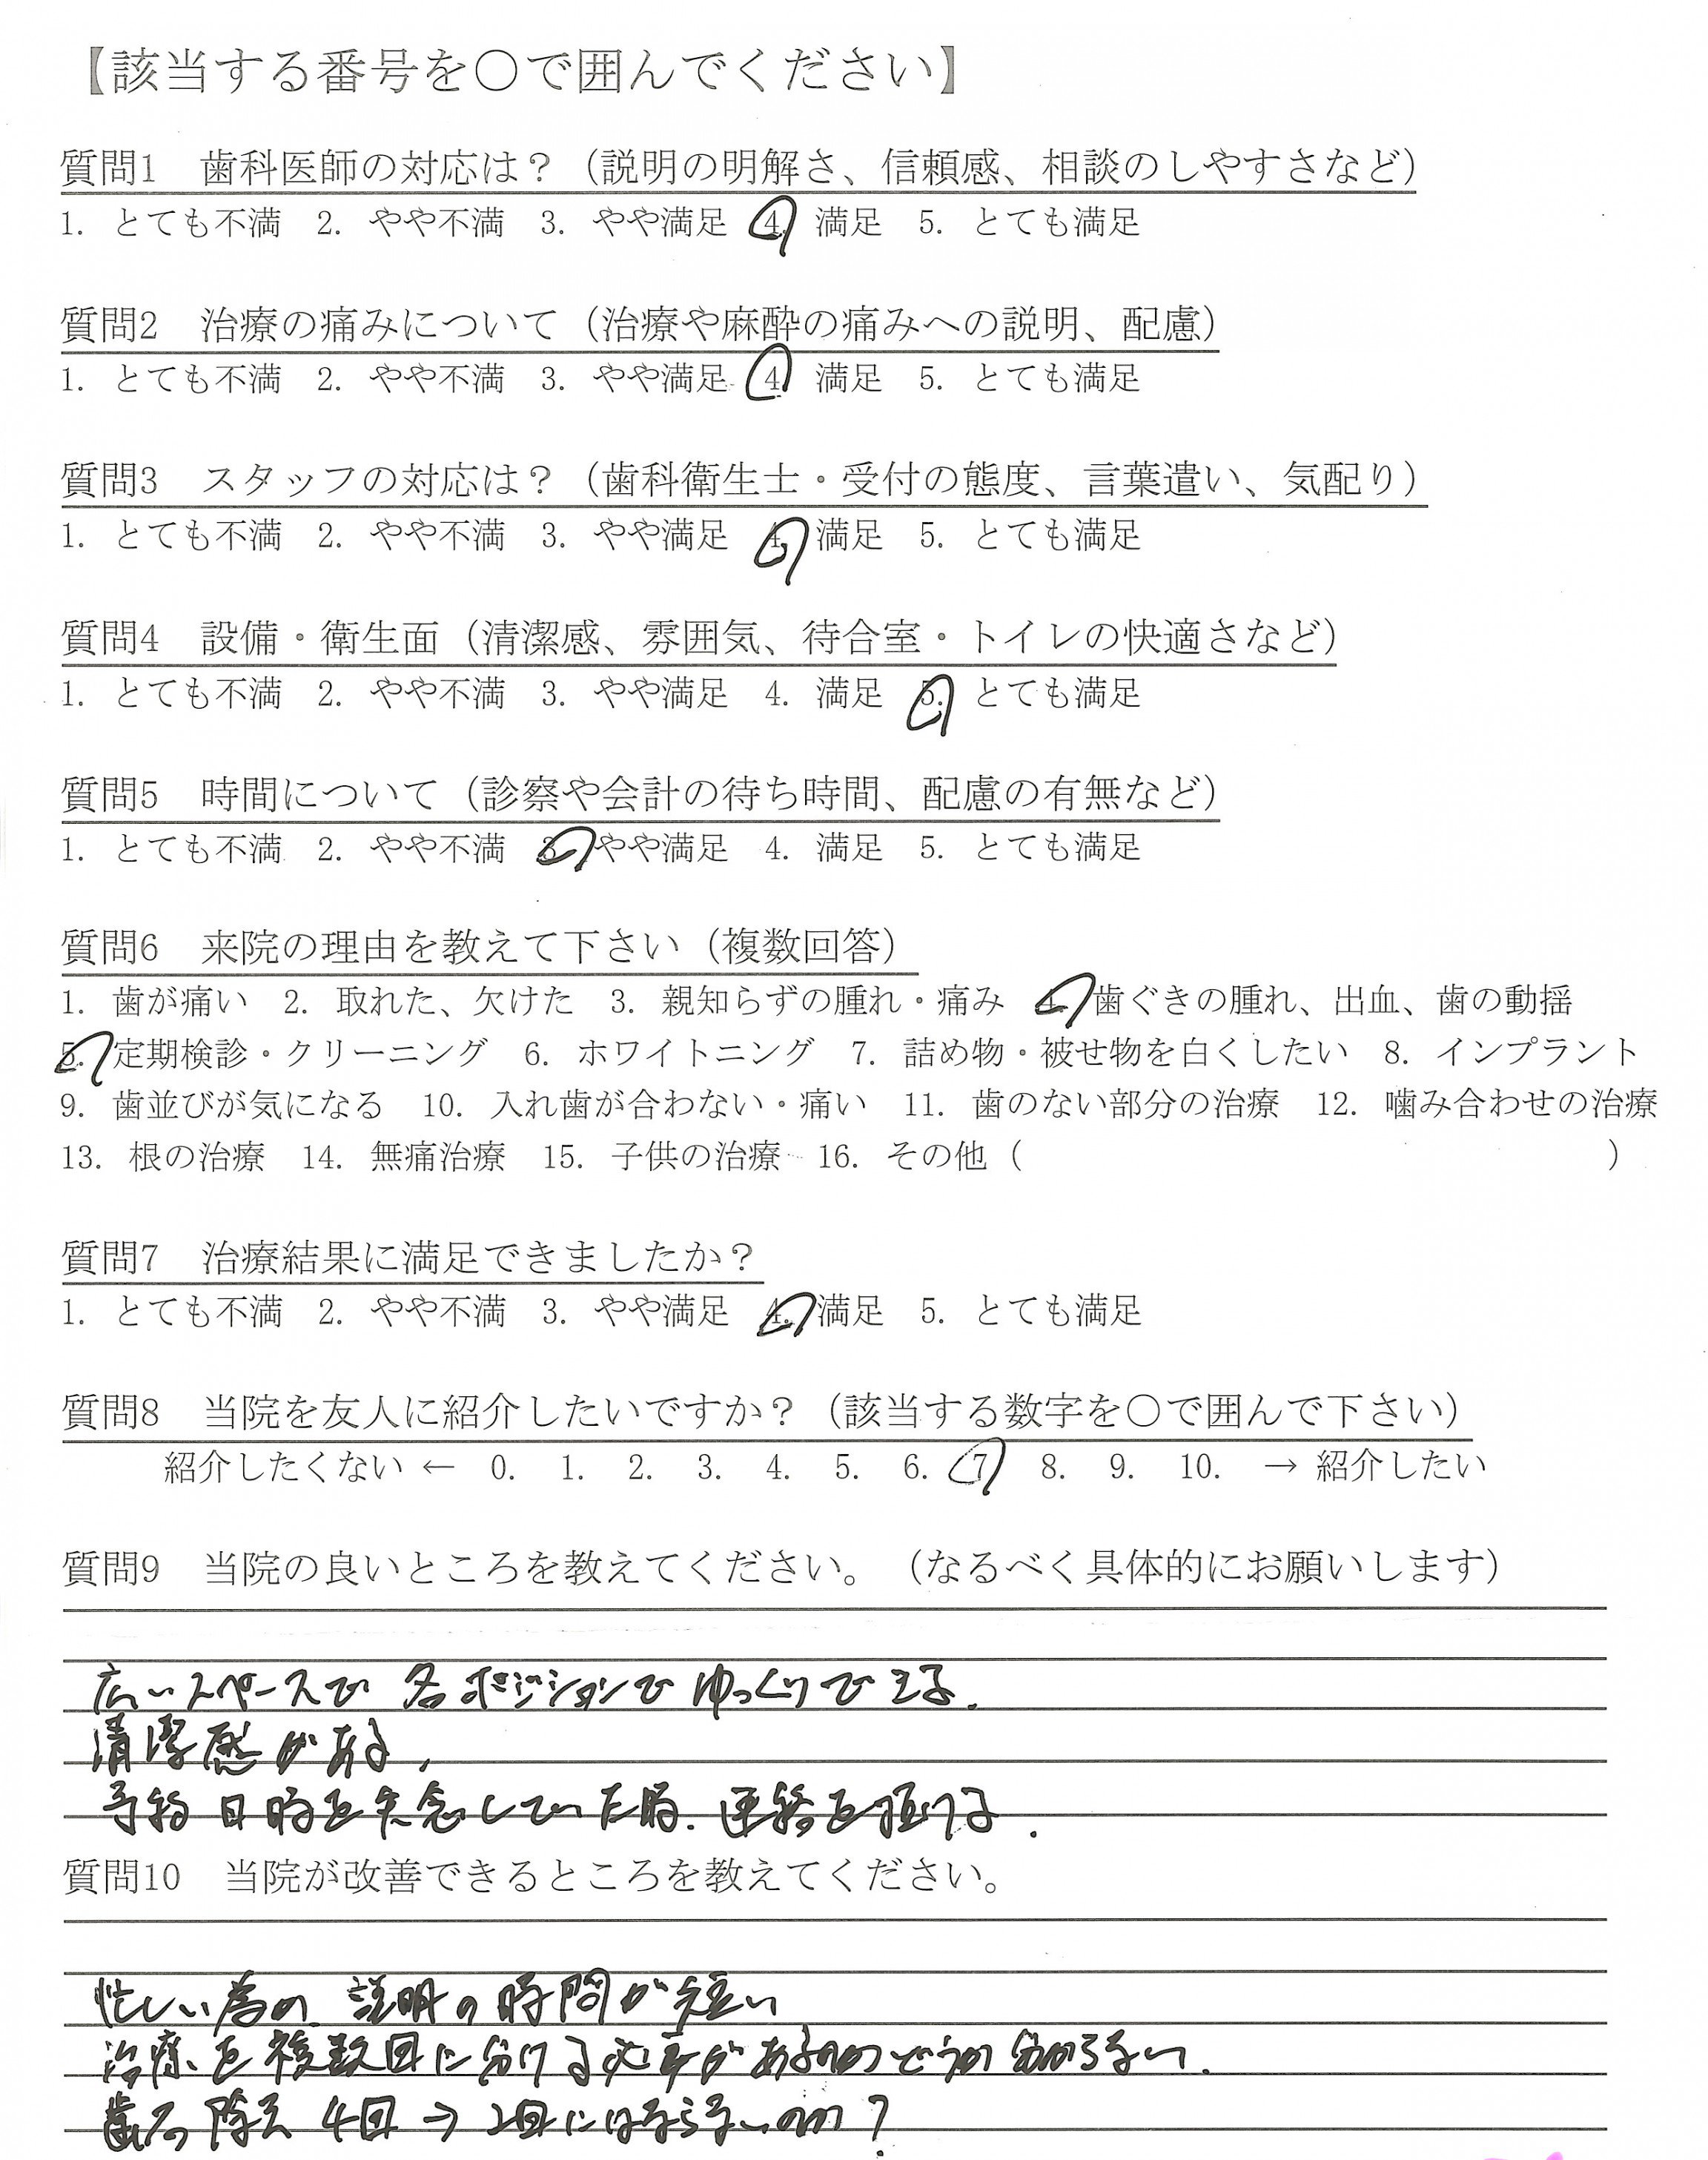 【該当する番号を○で囲んでください】
質問1　歯科医師の対応は？（説明の明解さ、信頼感、相談のしやすさなど）
1. とても不満　2. やや不満　3. やや満足　4. 満足　5. とても満足
質問2　治療の痛みについて（治療や麻酔の痛みへの説明、配慮）
1. とても不満　2. やや不満　3. やや満足　4. 満足　5. とても満足
質問3　スタッフの対応は？（歯科衛生士・受付の態度、言葉遣い、気配り）
1. とても不満　2. やや不満　3. やや満足　4. 満足　5. とても満足
質問4　設備・衛生面（清潔感、雰囲気、待合室・トイレの快適さなど）
1. とても不満　2. やや不満　3. やや満足　4. 満足　5. とても満足
質問5　時間について（診察や会計の待ち時間、配慮の有無など）
1. とても不満　2. やや不満　3. やや満足　4. 満足　5. とても満足
質問6　来院の理由を教えて下さい（複数回答）
1. 歯が痛い　2. 取れた、欠けた　3. 親知らずの腫れ・痛み　4. 歯ぐきの腫れ、出血、歯の動揺
5. 定期検診・クリーニング　6. ホワイトニング　7. 詰め物・被せ物を白くしたい　8. インプラント
9. 歯並びが気になる　10. 入れ歯が合わない・痛い　11. 歯のない部分の治療　12. 噛み合わせの治療
13. 根の治療　14. 無痛治療　15. 子供の治療　16. その他（　　　　　　　　　　）
質問7　治療結果に満足できましたか？
1. とても不満　2. やや不満　3. やや満足　4. 満足　5. とても満足
質問8　当院を友人に紹介したいですか？（該当する数字を○で囲んで下さい）
紹介したくない ← 0. 1. 2. 3. 4. 5. 6. 7 8. 9. 10. → 紹介したい
質問9　当院の良いところを教えてください。（なるべく具体的にお願いします）
広いスペースで 各ポジションで ゆっくりできる.
清潔感がある,
予約日時を失念していた時. 連絡を頂ける.
質問10　当院が改善できるところを教えてください。
忙しい為か 説明の時間が短い
治療を複数回に分ける必要があるのかどうか分からない.
歯石除去 4回→2回にはならないのか?